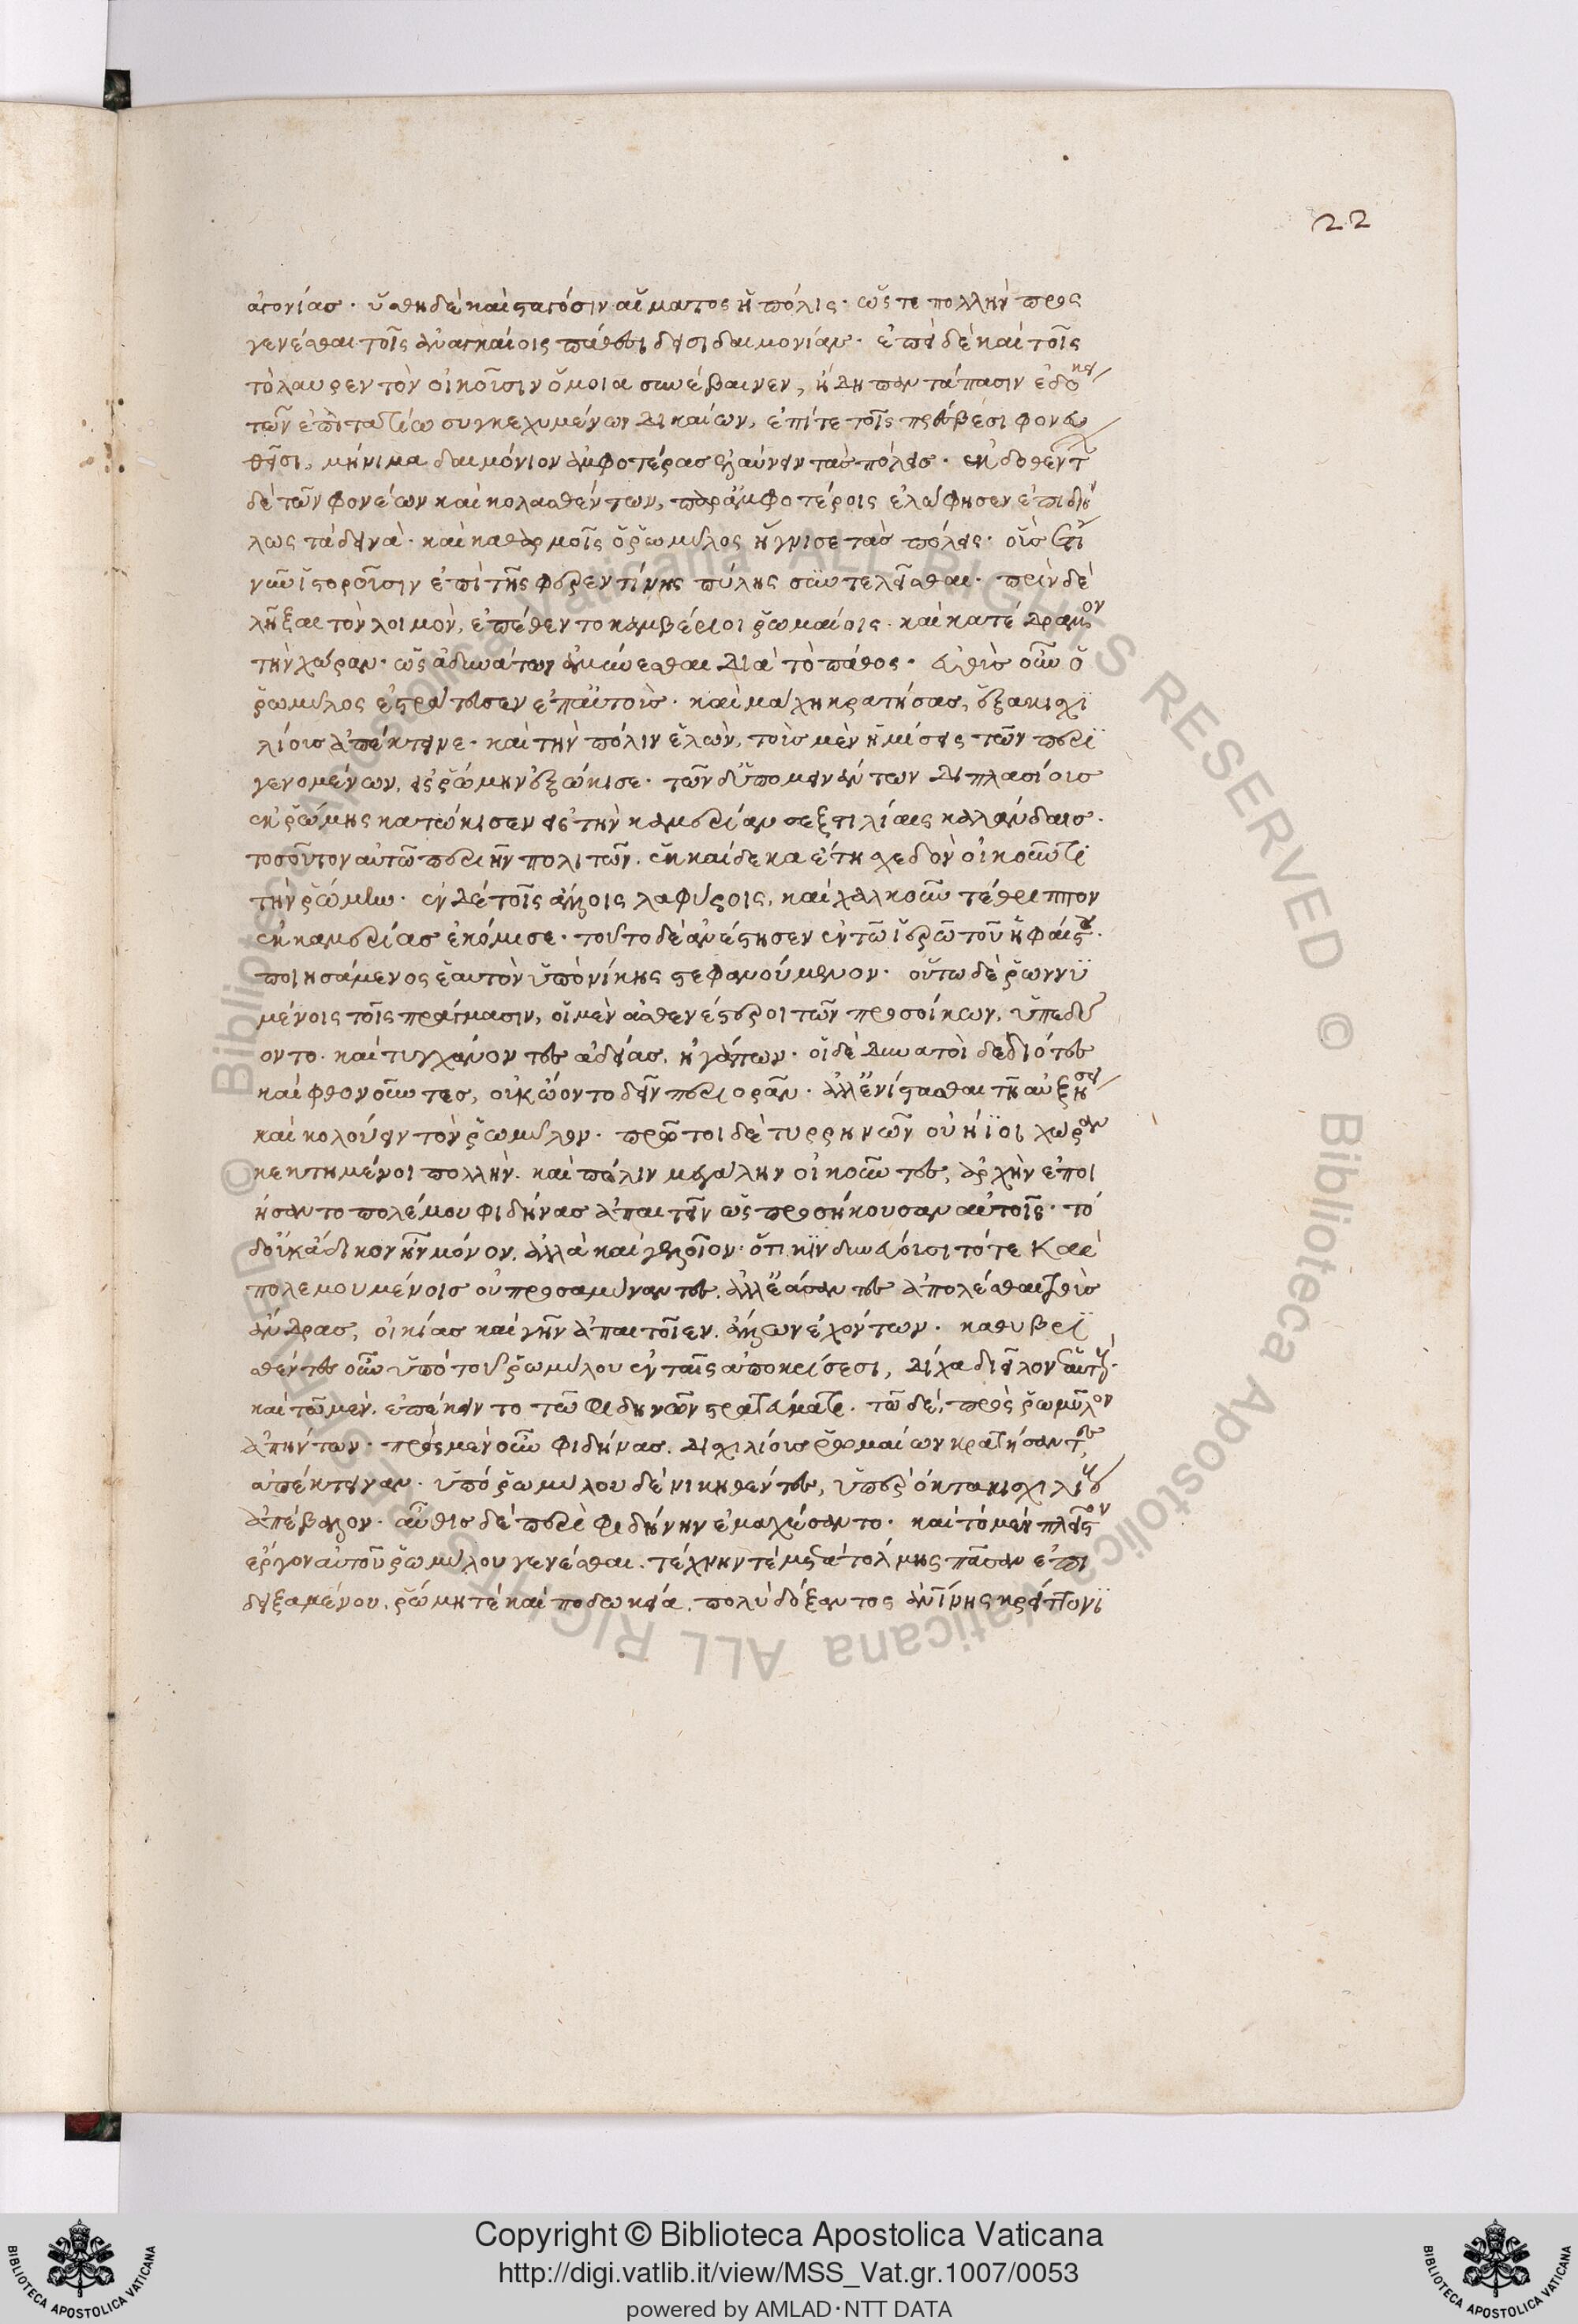 ἀγονίας· ὕσθη δὲ καὶ σταγόσιν αἵματος ἡ πόλις· ὥστε πολλὴν προς
γενέσθαι τοῖς ἀναγκαίοις πάθεσι δεισιδαιμονίαν· ἐπεὶ δὲ καὶ τοῖς
τὸ λαυρεντὸν οἰκοῦσιν ὅμοια συνέβαινεν, ἤδη παντάπασιν ἐδόκει
τῶν ἐπὶ τατίω συγκεχυμένων δικαίων, ἐπί τε τοῖς πρέσβεσι φονευ
θεῖσι, μήνιμα δαιμόνιον ἀμφοτέρας ἐλαύνειν τὰς πόλεις. ἐκδοθέντων
δὲ τῶν φονέων καὶ κολασθέντων, παρ' ἀμφοτέροις ἐλώφησεν ἐπιδή
λως τὰ δεινὰ· καὶ καθαρμοῖς ὁ ῥωμύλος ἥγνισε τὰς πόλεις· οὓς ἔτι
νῦν ἱστοροῦσιν ἐπὶ τῆς φερεντίνης πύλης συντελεῖσθαι. πρὶν δὲ
λῆξαι τὸν λοιμὸν, ἐπέθεντο καμβέριοι ῥωμαίοις. καὶ κατέδραμον
τὴν χώραν· ὡς ἀδυνάτων ἀμύνεσθαι διὰ τὸ πάθος. εὐθὺς οὖν ὁ
ῥωμύλος ἐστράτευσεν ἐπ' αὐτοὺς· καὶ μάχη κρατήσας, ἑξακισχι
λίους ἀπέκτεινε· καὶ τὴν πόλιν ἑλὼν, τοὺς μὲν ἡμίσεις τῶν περι
γενομένων, εἰς ῥώμην ἐξώκισε· τῶν δ' ὑπομεινάντων διπλασίους
ἐκ ῥώμης κατώκισεν εἰς τὴν καμερίαν σεξτιλίαις καλάνδαις.
τοσοῦτον αὐτῶ περιῆν πολιτῶν. ἑκκαίδεκα ἔτη σχεδὸν οἰκοῦντι
τὴν ῥώμην. ἐν δὲ τοῖς ἄλλοις λαφύροις, καὶ χαλκοῦν τέθριππον
ἐκ καμερίας ἐκόμισε· τοῦτο δὲ ἀνέστησεν ἐν τῶ ἱερῶ τοῦ ἡφαίστου.
ποιησάμενος ἑαυτὸν ὑπὸ νίκης στεφανούμενον. οὕτω δὲ ῥωννυ
μένοις τοῖς πράγμασιν, οἱ μὲν ἀσθενέστεροι τῶν προσοίκων, ὑπεδύ
οντο. καὶ τυγχάνοντες ἀδείας, ἠγάπων· οἱ δὲ δυνατοὶ δεδιότες
καὶ φθονοῦντες, οὐκ ὤοντο δεῖν περιορᾶν· ἀλλ' ἐνίστασθαι τῆ αὐξήσει
καὶ κολούειν τὸν ῥωμύλον. πρῶτοι δὲ τυρρηνῶν οὐήϊοι χώραν
κεκτημένοι πολλὴν. καὶ πόλιν μεγάλην οἰκοῦντες, ἀρχὴν ἐποι
ήσαντο πολέμου φιδήνας ἀπαιτεῖν ὡς προσήκουσαν αὐτοῖς· τὸ
δ' οὐκ ἄδικον ἦν μόνον, ἀλλὰ καὶ γελοῖον· ὅτι κινδυνεύουσι τότε καὶ
πολεμουμένοις οὐ προσαμύναντες, ἀλλ' ἐάσαντες ἀπολέσθαι τοὺς
ἄνδρας, οἰκίας καὶ γῆν ἀπαιτοῖεν, ἄλλων ἐχόντων. καθυβρι
σθέντες οὖν ὑπὸ τοῦ ῥωμύλου ἐν ταῖς ἀποκρίσεσι, δίχα διεῖλον αὑτούς·
καὶ τῶ μὲν, ἐπέκειντο τῶ φιδηνῶν στρατεύματι. τῶ δὲ, πρὸς ῥωμύλον
ἀπήντων· πρὸς μὲν οὖν φιδήνας, δισχιλίους ῥωμαίων κρατήσαντες
ἀπέκτειναν. ὑπὸ ῥωμύλου δὲ νικηθέντες, ὑπὲρ ὀκτακισχιλίους
ἀπέβαλον. αὖθις δὲ περὶ φιδήνην ἐμαχέσαντο. καὶ τὸ μὲν πλεῖστον
ἔργον αὐτοῦ ῥωμύλου γενέσθαι. τέχνην τὲ μετὰ τόλμης πᾶσαν ἐπι
δειξαμένου, ῥώμη τὲ καὶ ποδωκεία, πολὺ δόξαντος ἀνθρωπίνης κρείττονι